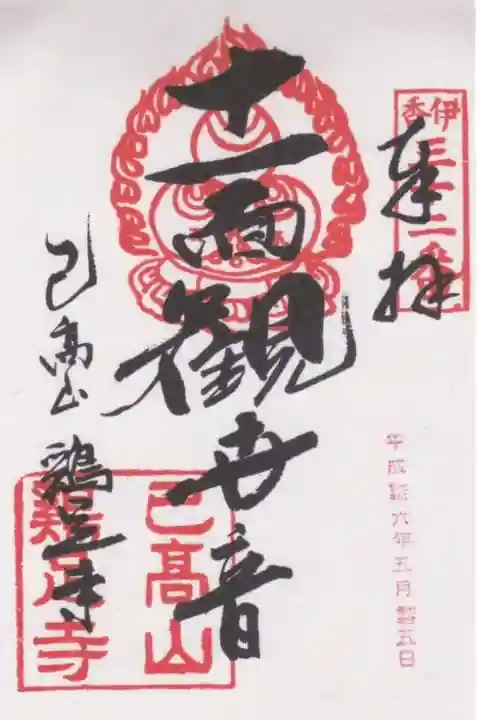 伊香三十二番
奉拝
十一面觀世音
己高山 鶏足寺
己高山
雞足寺
平成六年五月五日